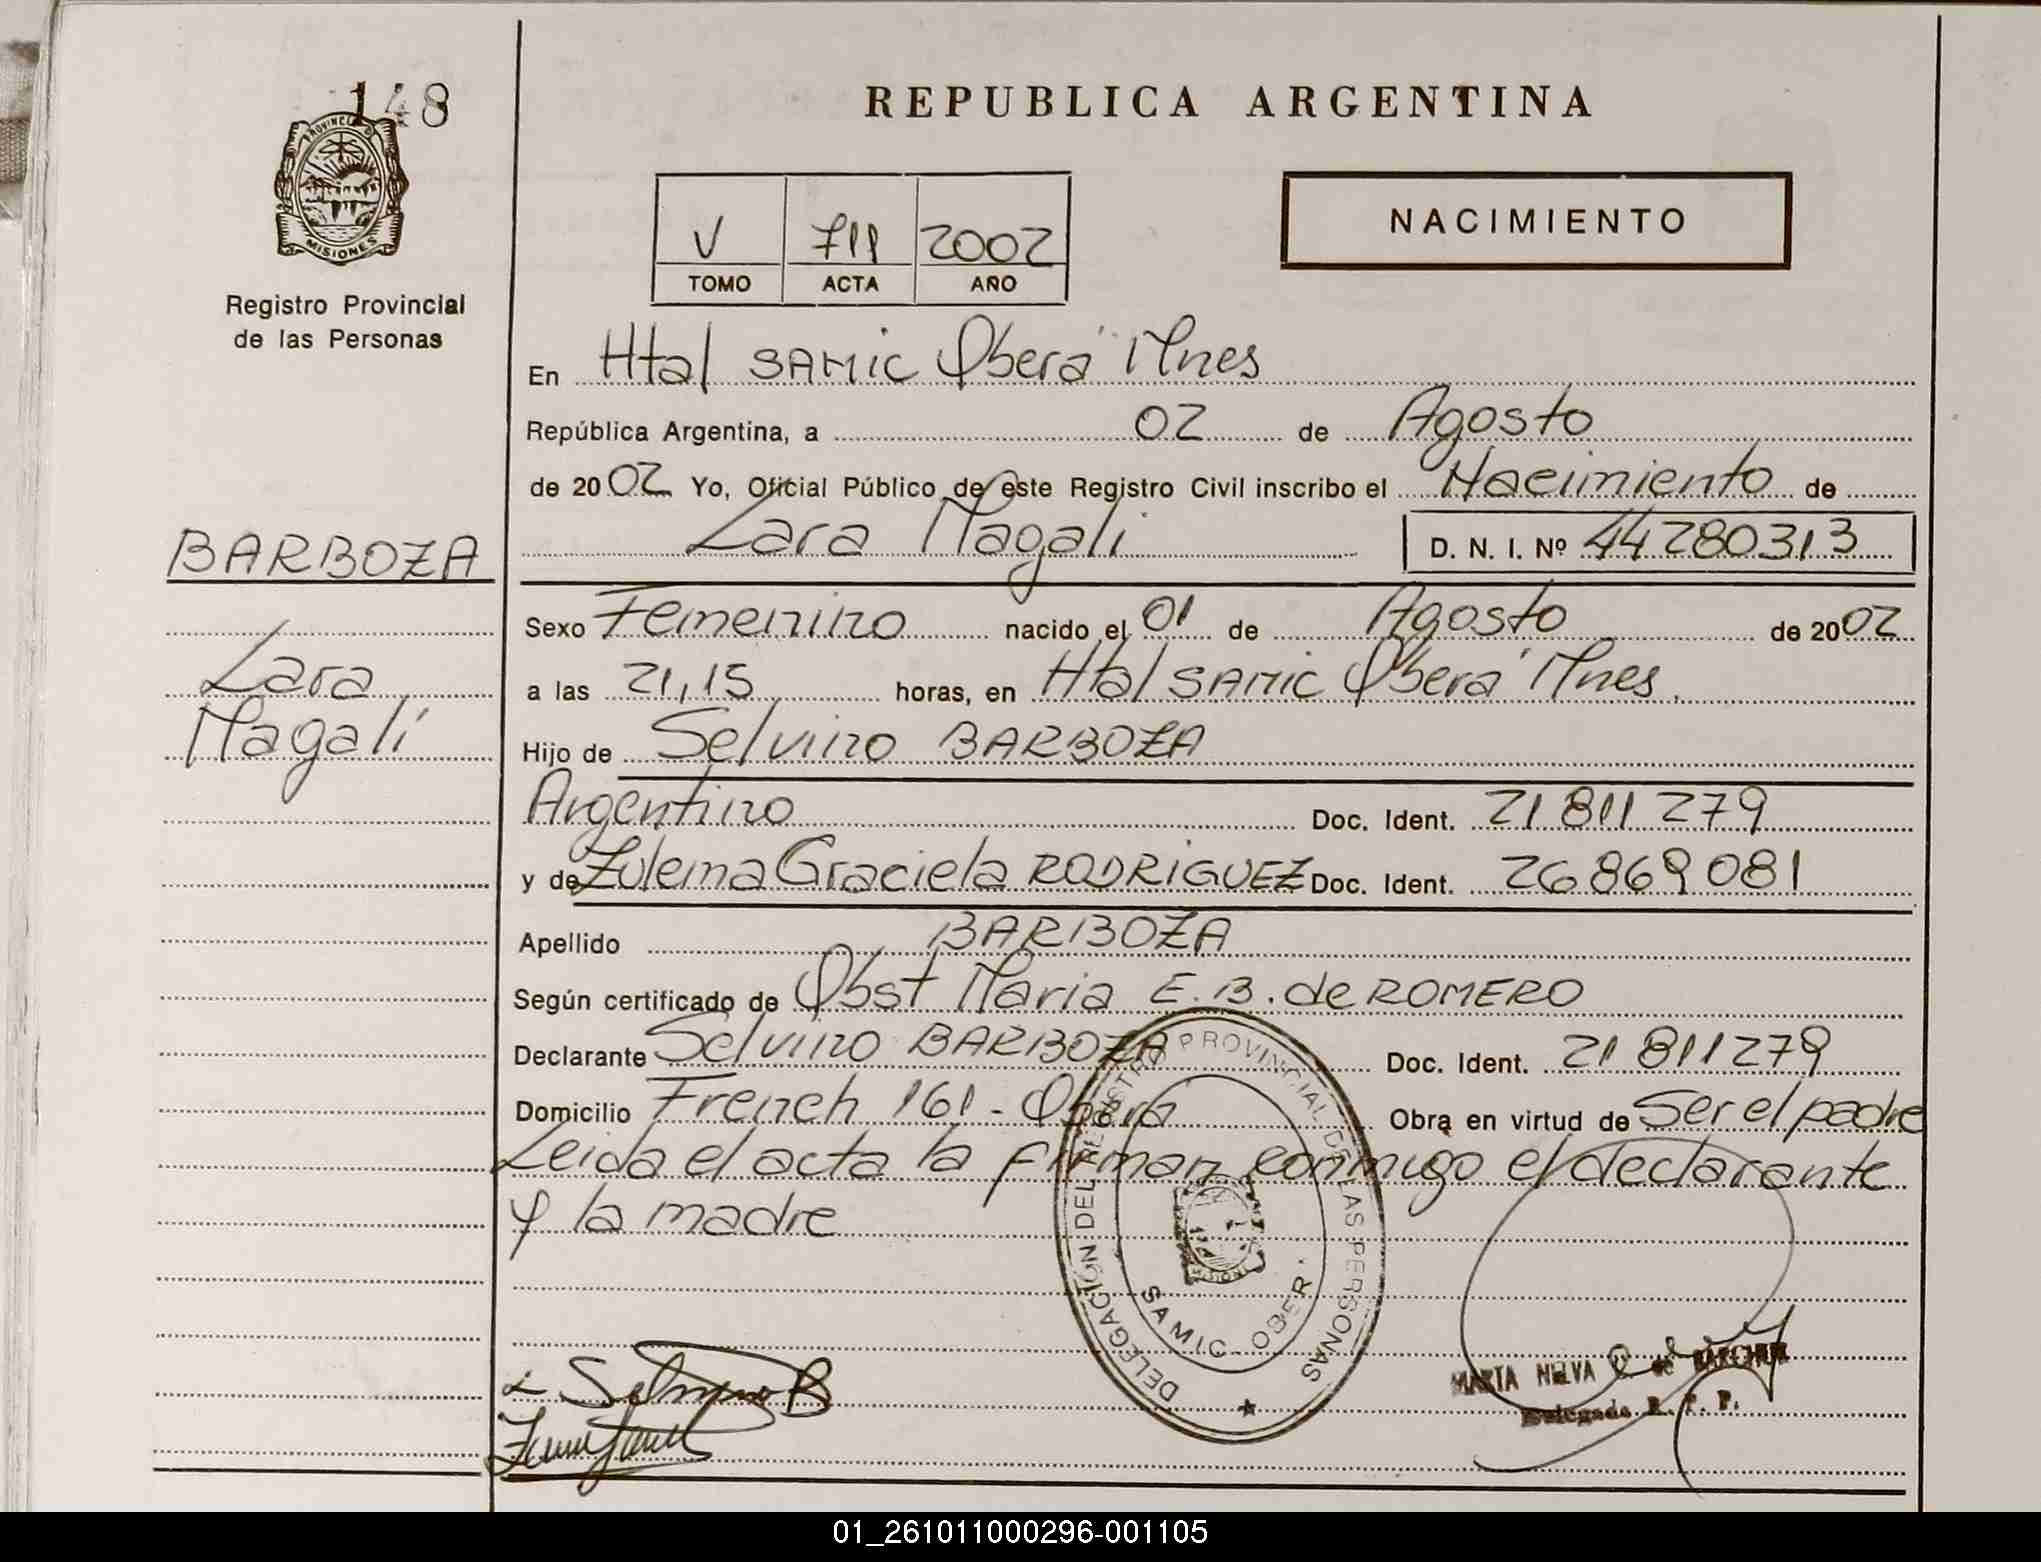 148
REPUBLICA ARGENTINA
PROVINCIA D
MISIONES
Registro Provincial
de las Personas
V 711 2002
TOMO ACTA AÑO
NACIMIENTO
En Htal SAMIC Oberá Mnes
República Argentina, a 02 de Agosto
de 2002 Yo, Oficial Público de este Registro Civil inscribo el Nacimiento de
Lara Magali D. N. I. Nº 44280313
BARBOZA
Lara
Magalí
Sexo Femenino nacido el 01 de Agosto de 2002
a las 21,15 horas, en Htal SAMIC Oberá Mnes.
Hijo de Selvino BARBOZA
Argentino Doc. Ident. 21 811 279
y de Zulema Graciela RODRIGUEZ Doc. Ident. 26 869 081
Apellido BARBOZA
Según certificado de Obst Maria E. B. de ROMERO
Declarante Selvino BARBOZA Doc. Ident. 21 811 279
Domicilio French 161 - Oberá Obra en virtud de Ser el padre
Leida el acta la firman conmigo el declarante
y la madre
DELEGACIÓN DEL REGISTRO PROVINCIAL DE LAS PERSONAS
MISIONES
SAMIC - OBER
Selvino B
MARTA NELVA
Delegada R. P. P.
01_261011000296-001105